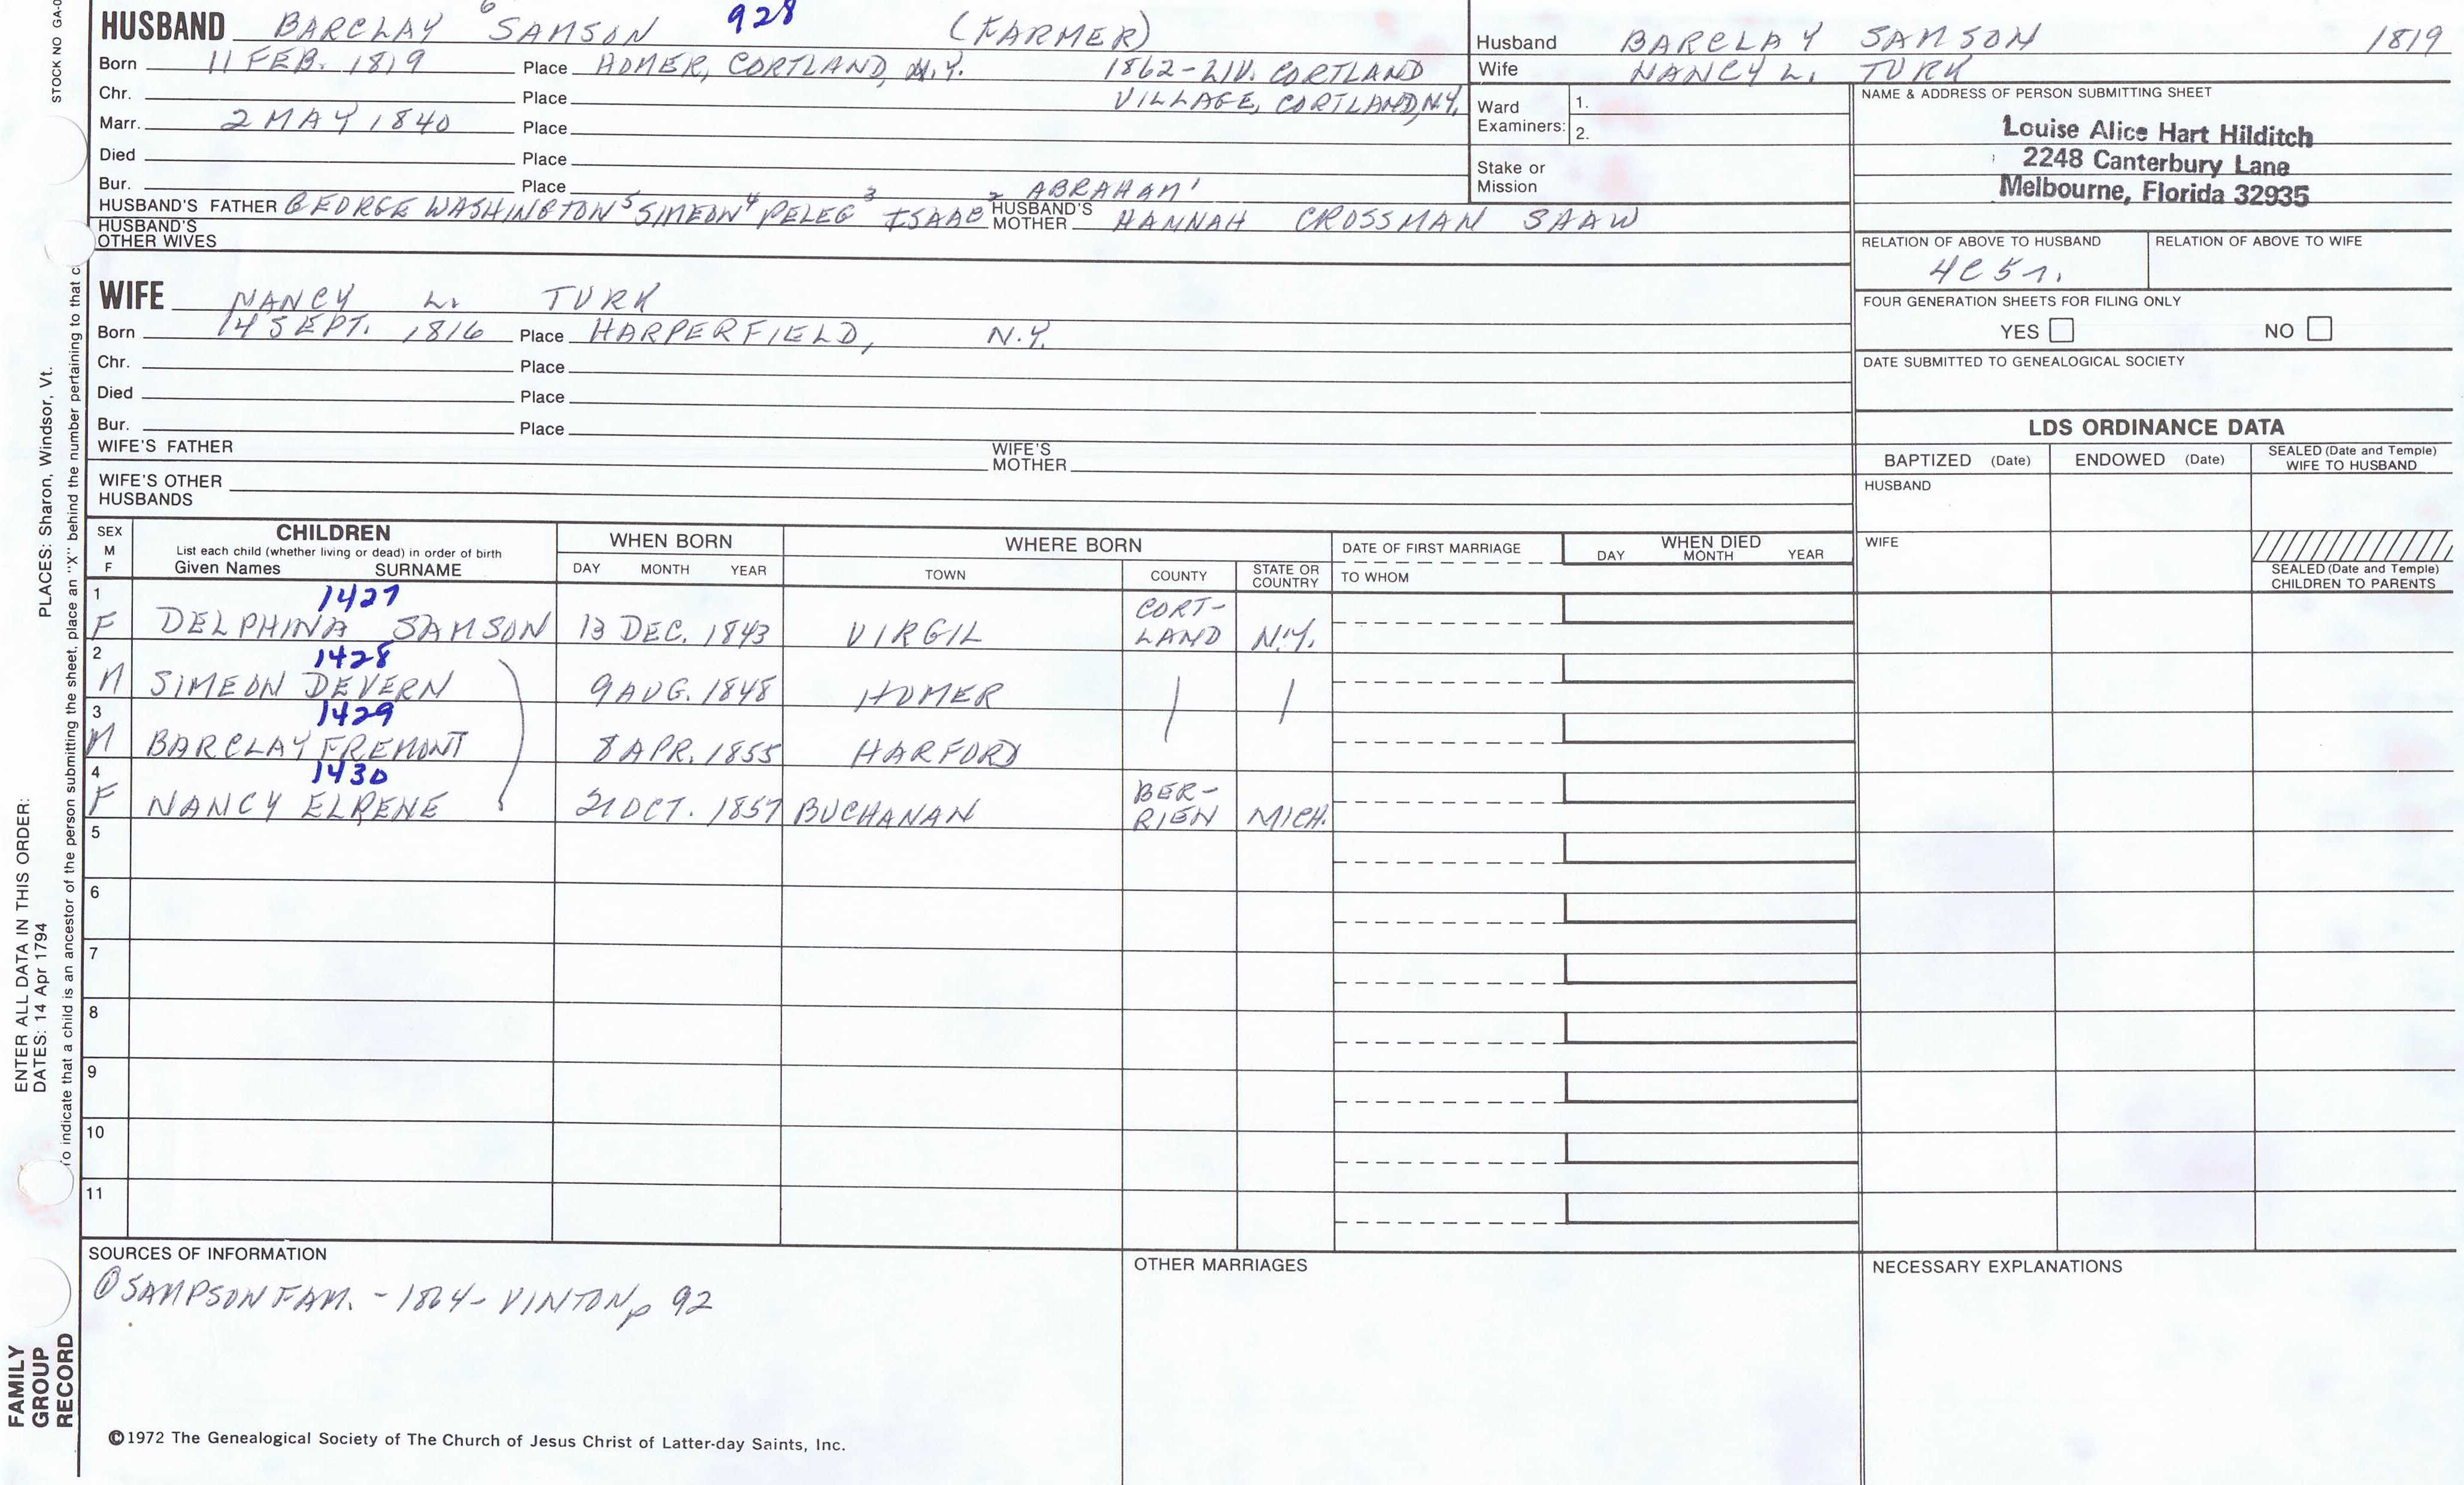 STOCK NO GA-0
HUSBAND BARCLAY 6 SAMSON 928 (FARMER)
Born 11 FEB. 1819 Place HOMER, CORTLAND, N.Y. 1862-LIV. CORTLAND
Chr. Place VILLAGE, CORTLAND, N.Y.
Marr. 2 MAY 1840 Place
Died Place
Bur. Place ABRAHAM 1
HUSBAND'S FATHER GEORGE WASHINGTON 5 SIMEON 4 PELEG 3 ISAAC 2 HUSBAND'S MOTHER HANNAH CROSSMAN SAAW
HUSBAND'S OTHER WIVES
Husband BARCLAY SAMSON 1819
Wife NANCY L. TURK
Ward Examiners: 1.
2.
Stake or Mission
NAME & ADDRESS OF PERSON SUBMITTING SHEET
Louise Alice Hart Hilditch
2248 Canterbury Lane
Melbourne, Florida 32935
RELATION OF ABOVE TO HUSBAND RELATION OF ABOVE TO WIFE
4C5r.
FOUR GENERATION SHEETS FOR FILING ONLY
YES NO
DATE SUBMITTED TO GENEALOGICAL SOCIETY
WIFE NANCY L. TURK
Born 14 SEPT. 1816 Place HARPERFIELD, N.Y.
Chr. Place
Died Place
Bur. Place
WIFE'S FATHER WIFE'S MOTHER
WIFE'S OTHER HUSBANDS
LDS ORDINANCE DATA
BAPTIZED (Date) ENDOWED (Date) SEALED (Date and Temple) WIFE TO HUSBAND
HUSBAND
WIFE
SEALED (Date and Temple) CHILDREN TO PARENTS
SEX M F CHILDREN WHEN BORN WHERE BORN DATE OF FIRST MARRIAGE WHEN DIED
List each child (whether living or dead) in order of birth
Given Names SURNAME DAY MONTH YEAR TOWN COUNTY STATE OR COUNTRY TO WHOM DAY MONTH YEAR
1 1427
F DELPHINA SAMSON 13 DEC. 1843 VIRGIL CORT-LAND N.Y.
2 1428
M SIMEON DEVERN 9 AUG. 1848 HOMER
3 1429
M BARCLAY FREMONT 8 APR. 1855 HARFORD
4 1430
F NANCY ELRENE 21 OCT. 1857 BUCHANAN BER-RIEN MICH.
5
6
7
8
9
10
11
SOURCES OF INFORMATION
① SAMPSON FAM. - 1864 - VINTON p 92
OTHER MARRIAGES
NECESSARY EXPLANATIONS
©1972 The Genealogical Society of The Church of Jesus Christ of Latter-day Saints, Inc.
FAMILY GROUP RECORD
ENTER ALL DATA IN THIS ORDER:
DATES: 14 Apr 1794
PLACES: Sharon, Windsor, Vt.
To indicate that a child is an ancestor of the person submitting the sheet, place an "X" behind the number pertaining to that c